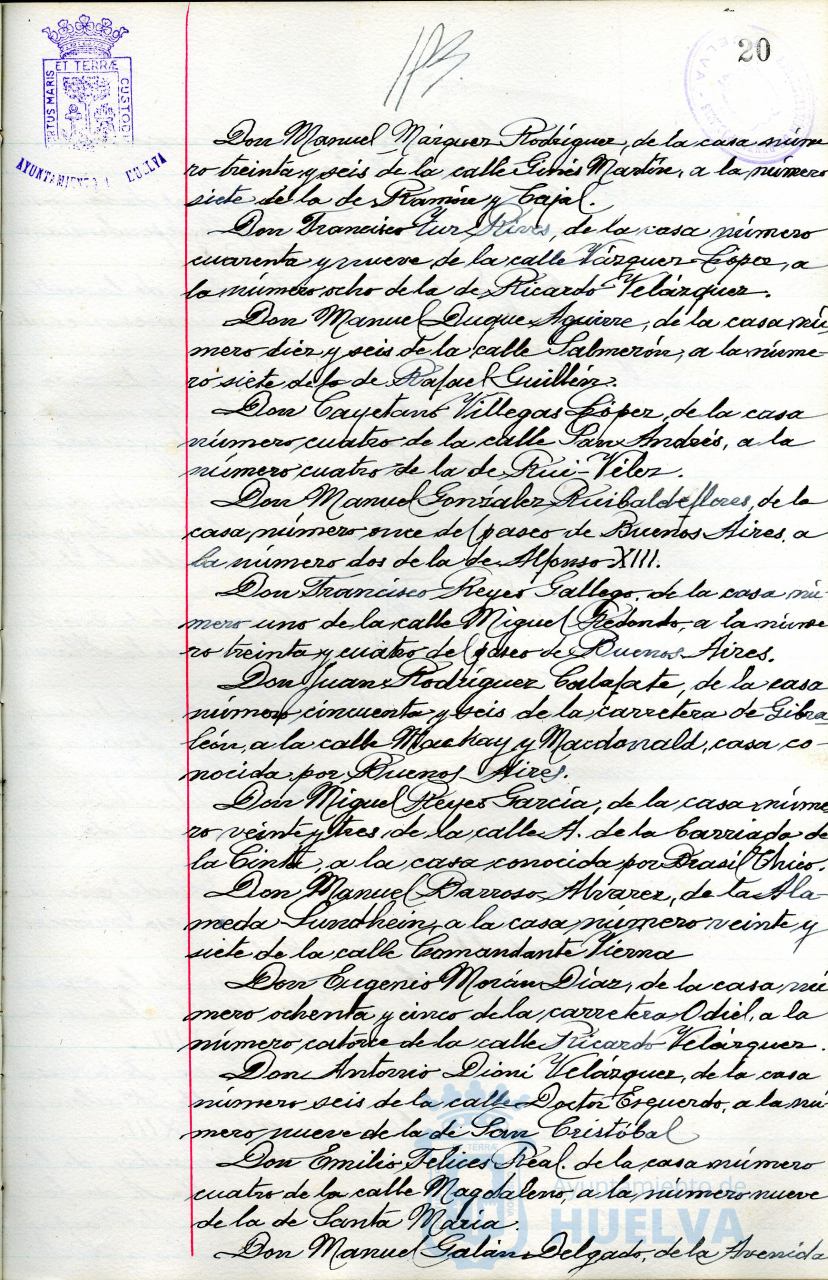 20
ET TERRÆ
CUSTODI
AYUNTAMIENTO
HUELVA
Don Manuel Márquez Rodríguez, de la casa núme
ro treinta y seis de la calle Ginés Martín, a la número
siete de la de Ramón y Cajal.
Don Francisco de la casa número
cuarenta y nueve de la calle Vázquez López, a
la número ocho de la de Ricardo Velázquez.
Don Manuel Duque Aguirre, de la casa nú-
mero diez y seis de la calle Salmerón, a la núme-
ro siete de la de Rafael Guillén.
Don Cayetano Villegas López, de la casa
número cuatro de la calle San Andrés, a la
número cuatro de la de Rui-Vélez.
Don Manuel González Ruibaldeflores, de la
casa número once del paseo de Buenos Aires, a
la número dos de la de Alfonso XIII.
Don Francisco Reyes Gallego, de la casa nú-
mero uno de la calle Miguel Redondo, a la núme
ro treinta y cuatro del paseo de Buenos Aires.
Don Juan Rodríguez Calafate, de la casa
número cincuenta y seis de la carretera de Gibra
león, a la calle Mackay y Macdonald, casa co-
nocida por Buenos Aires.
Don Miguel Reyes García, de la casa núme
ro veinte y tres de la calle A. de la barriada de
la Cinta, a la casa conocida por Brasil Chico.
Don Manuel Barroso Alvarez, de la Ala-
meda Sundhein, a la casa número veinte y
siete de la calle Comandante Vierna
Don Eugenio Morán Díaz, de la casa nú
mero ochenta y cinco de la carretera Odiel, a la
número catorce de la calle Ricardo Velázquez.
Don Antonio Dioni Velázquez, de la casa
número seis de la calle Doctor Esquerdo, a la nú-
mero nueve de la de San Cristóbal
Don Emilio Felices Real. de la casa número
cuatro de la calle Magdalena, a la número nueve
de la de Santa María.
Don Manuel Galán Delgado, de la Avenida
Ayuntamiento de
HUELVA